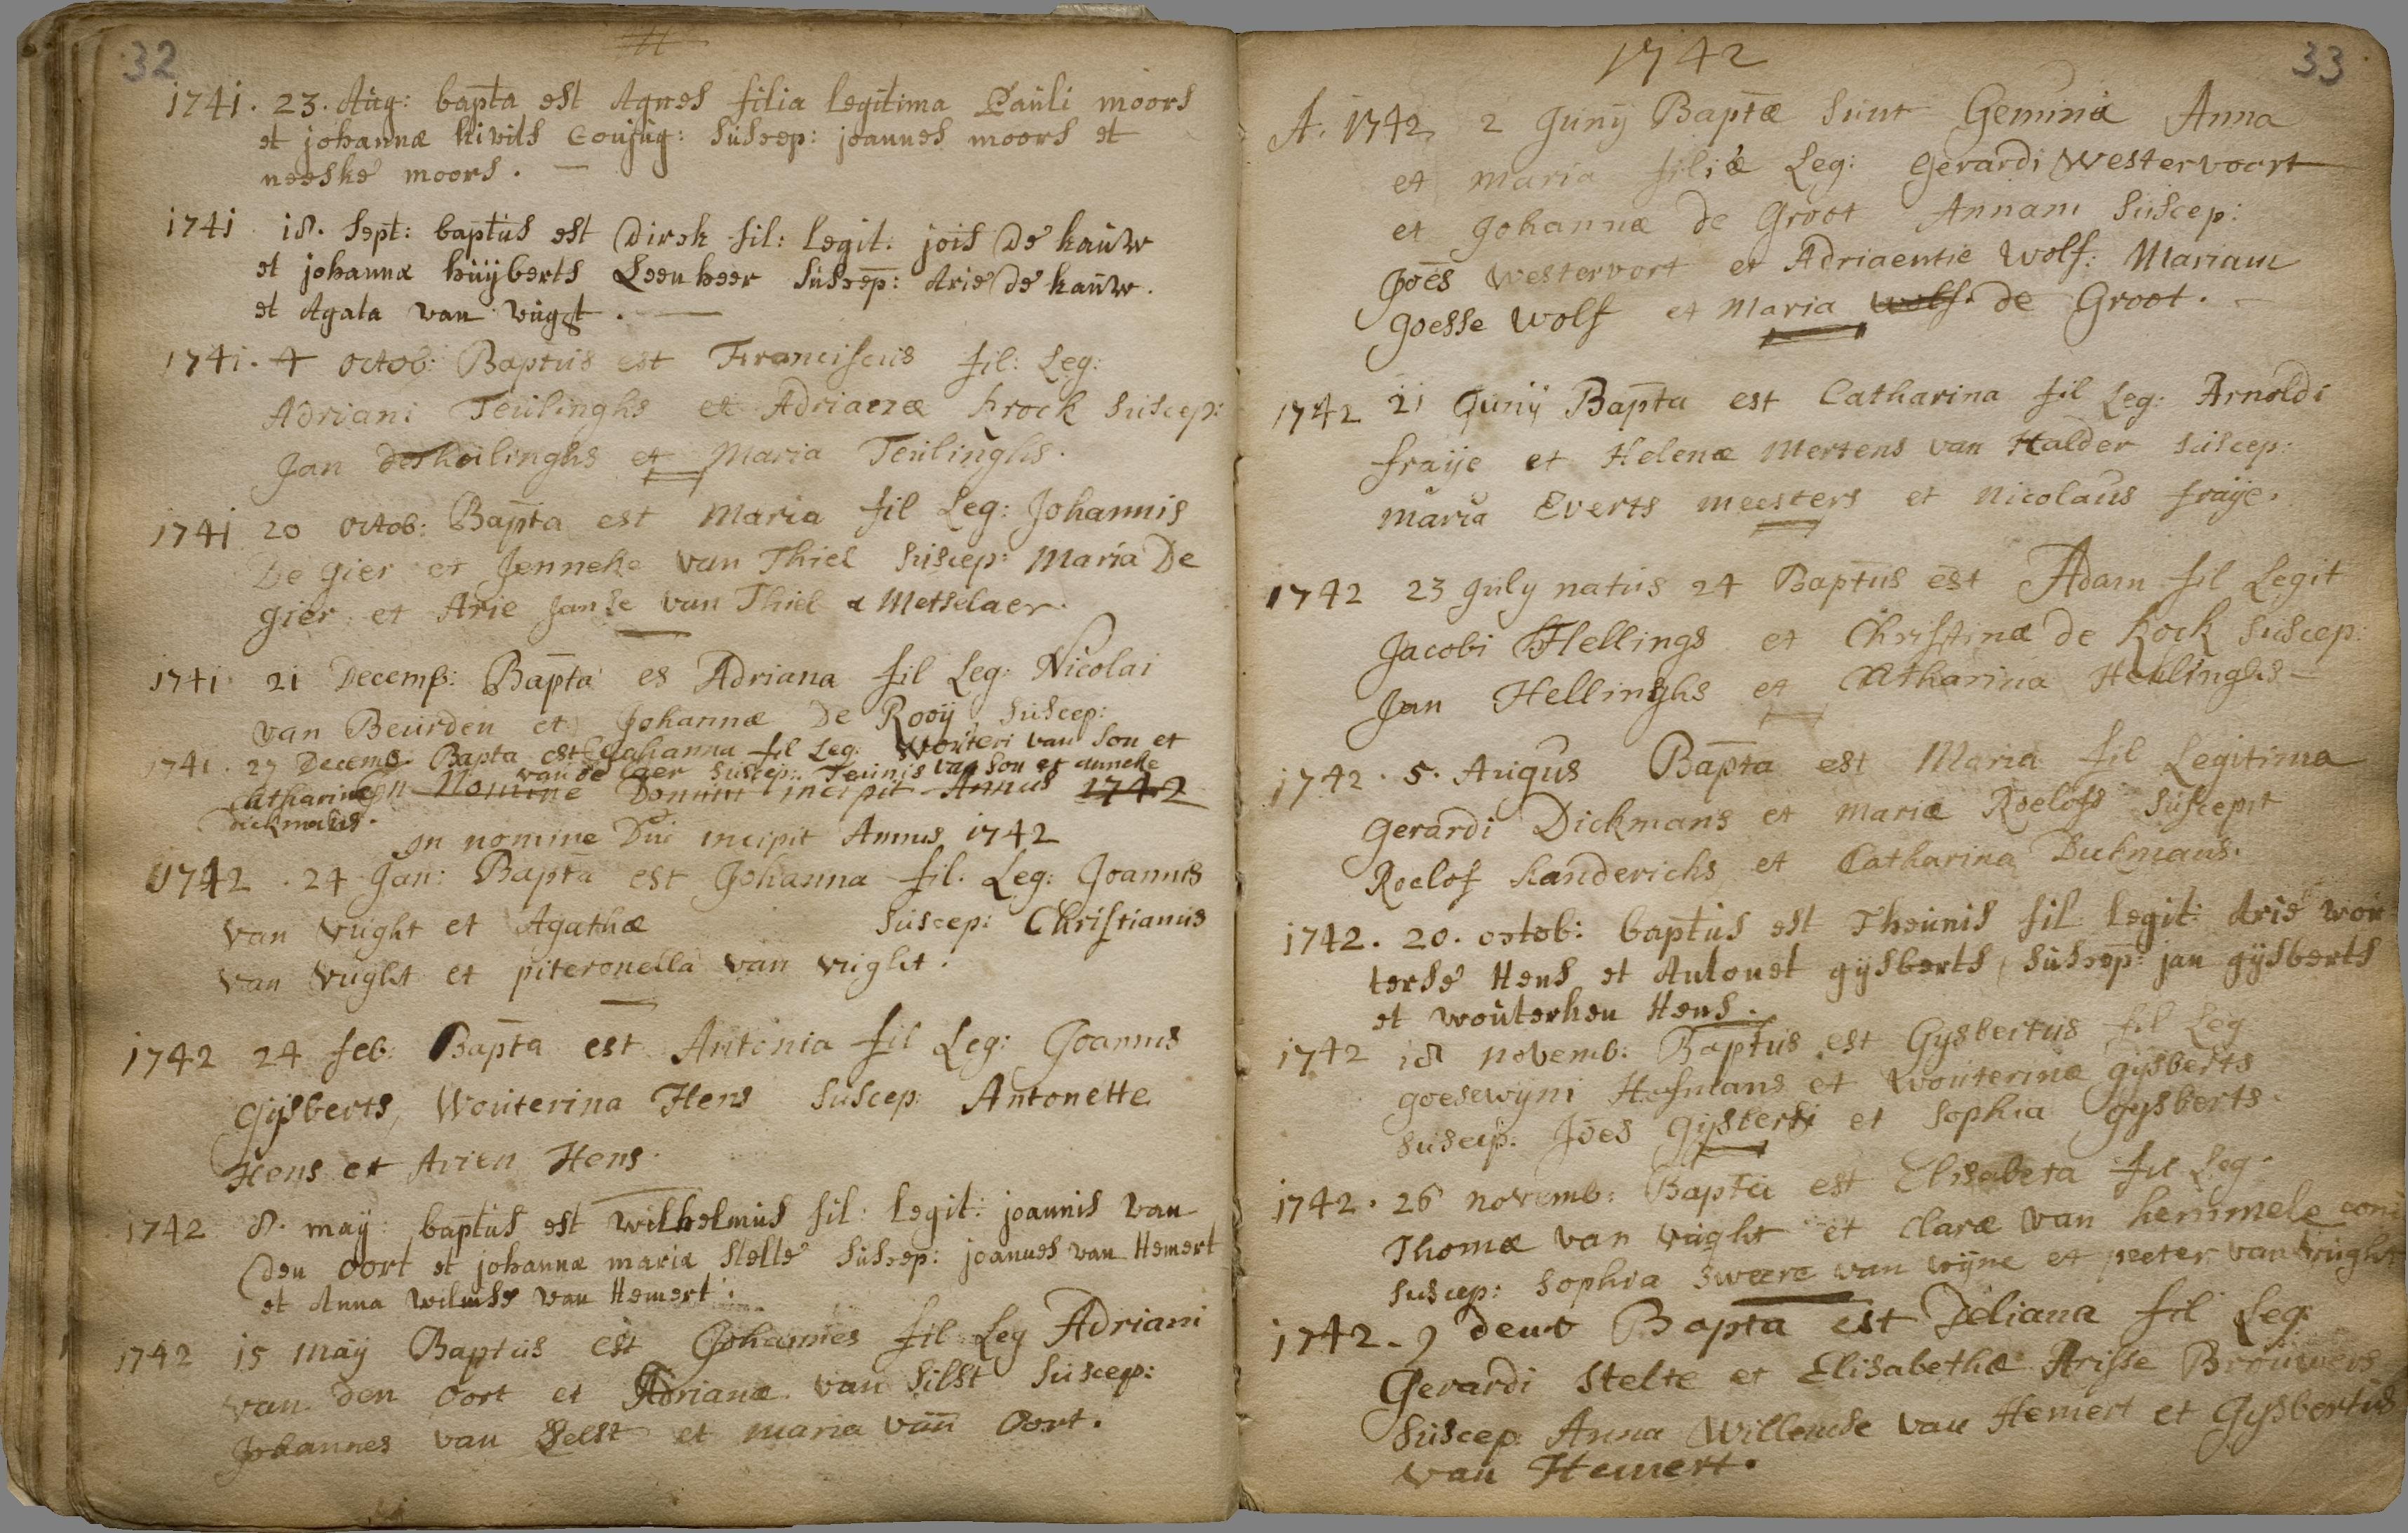 32
1741. 23. Aug: bapta est Agnes filia legitima Pauli moors
et johannæ kivits Conjug: Suscep: joannes moors et
neeske moors.
1741 18. Sept: baptus est Dirck fil: legit: jois De kauw
et johannæ huijberts Leenheer Suscep: Arie de kauw.
et Agata van vugt.
1741. 4 octob: Baptus est Franciscus fil: Leg:
Adriani Teulinghs et Adrianæ Krock Suscep:
Jan Teulinghs et Maria Teulinghs.
1741 20 octob: Bapta est Maria fil Leg: Johannis
De gier et Jenneke van Thiel Suscep: Maria De
gier et Arie Janse van Thiel a Metselaer.
1741 21 Decemb: Bapta es Adriana fil Leg: Nicolai
van Beurden et Johannæ De Rooij Suscep:
1741. 27 Decemb Bapta est Johanna fil Leg: Wouteri van Son et
Catharinæ van de Laer Suscep: Teunis van Son et Anneke
Dickmans.
In Nomine Domini incipit Annus 1742
In nomine Dni incipit Annus 1742
1742. 24 Jan: Bapta est Johanna fil. Leg: Joannis
van vught et Agathæ Suscep: Christianus
van vught et piteronella van vught.
1742 24 feb: Bapta est Antonia fil Leg: Joannis
Gijsberts, Wouterina Hens Suscep: Antonette
Hens et Arien Hens.
1742 8. maij: baptus est wilhelmus fil: legit: joannis van
Den oort et johannæ mariæ Stelte Suscep: joannes van Hemert
et Anna wilmse van Hemert.
1742 15 maij Baptus est Johannes fil: Leg Adriani
van den oort et Adrianæ van Silst Suscep:
Johannes van Seest et maria van Oort.
1742
33
A. 1742, 2 Junij Baptæ Sunt Geminæ Anna
et maria filiæ Leg: Gerardi Westervoort
et Johannæ de Groot Annam Suscep:
Joes Westervort et Adriaentie Wolf: Mariam
Goesse Wolf et Maria wolf. de Groot.
1742 21 Junij Bapta est Catharina fil Leg: Arnoldi
fraije et Helenæ Mertens van Halder Suscep:
maria Everts meesters et Nicolaus fraije.
1742 23 July natus 24 Baptus est Adam fil Legit
Jacobi Hellings et Christinæ de Kock Suscep:
Jan Hellinghs et Catharina Hellinghs
1742. 5. Augus Bapta est Maria fil Legitima
Gerardi Dickmans et Mariæ Roelofs Suscepit
Roelof Kanderichs et Catharina Dickmans.
1742. 20. octob: baptus est Theunis fil legit: Arie wou
terse Hens et Antonet gijsberts, Suscep: jan gijsberts
et wouterken Hens.
1742 18 novemb: Baptus est Gysbertus fil Leg
goesewijni Hofmans et Wouterinæ gijsberts
Suscep. Joes Gijsberti et Sophia gysberts.
1742. 26 novemb: Bapta est Elisabeta fil Leg.
Thomæ van vught et Claræ van hemmele con
Suscep: Sophia Sweere van wijne et peeter van vught
1742. 9 Bapta est Deliana fil Leg:
Gerardi Stelte et Elisabethæ Arisse Brouwers
Suscep: Anna Willemse van Hemert et Gysbertus
van Hemert.